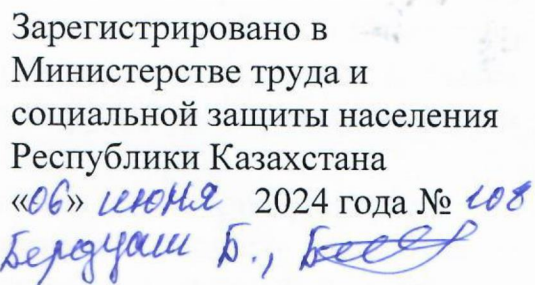 Зарегистрировано в
Министерстве труда и
социальной защиты населения
Республики Казахстана
«06» июня 2024 года № 108
Б.,